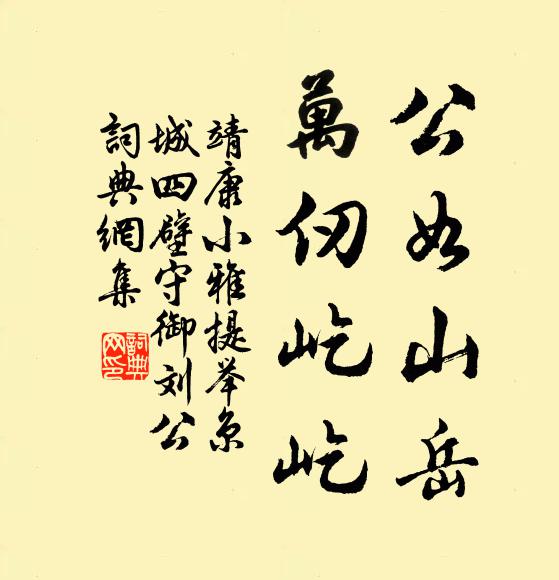 公如山岳
萬仞屹屹
靖康小雅提举京
城四壁守御刘公
詞典網集
詞典
网印